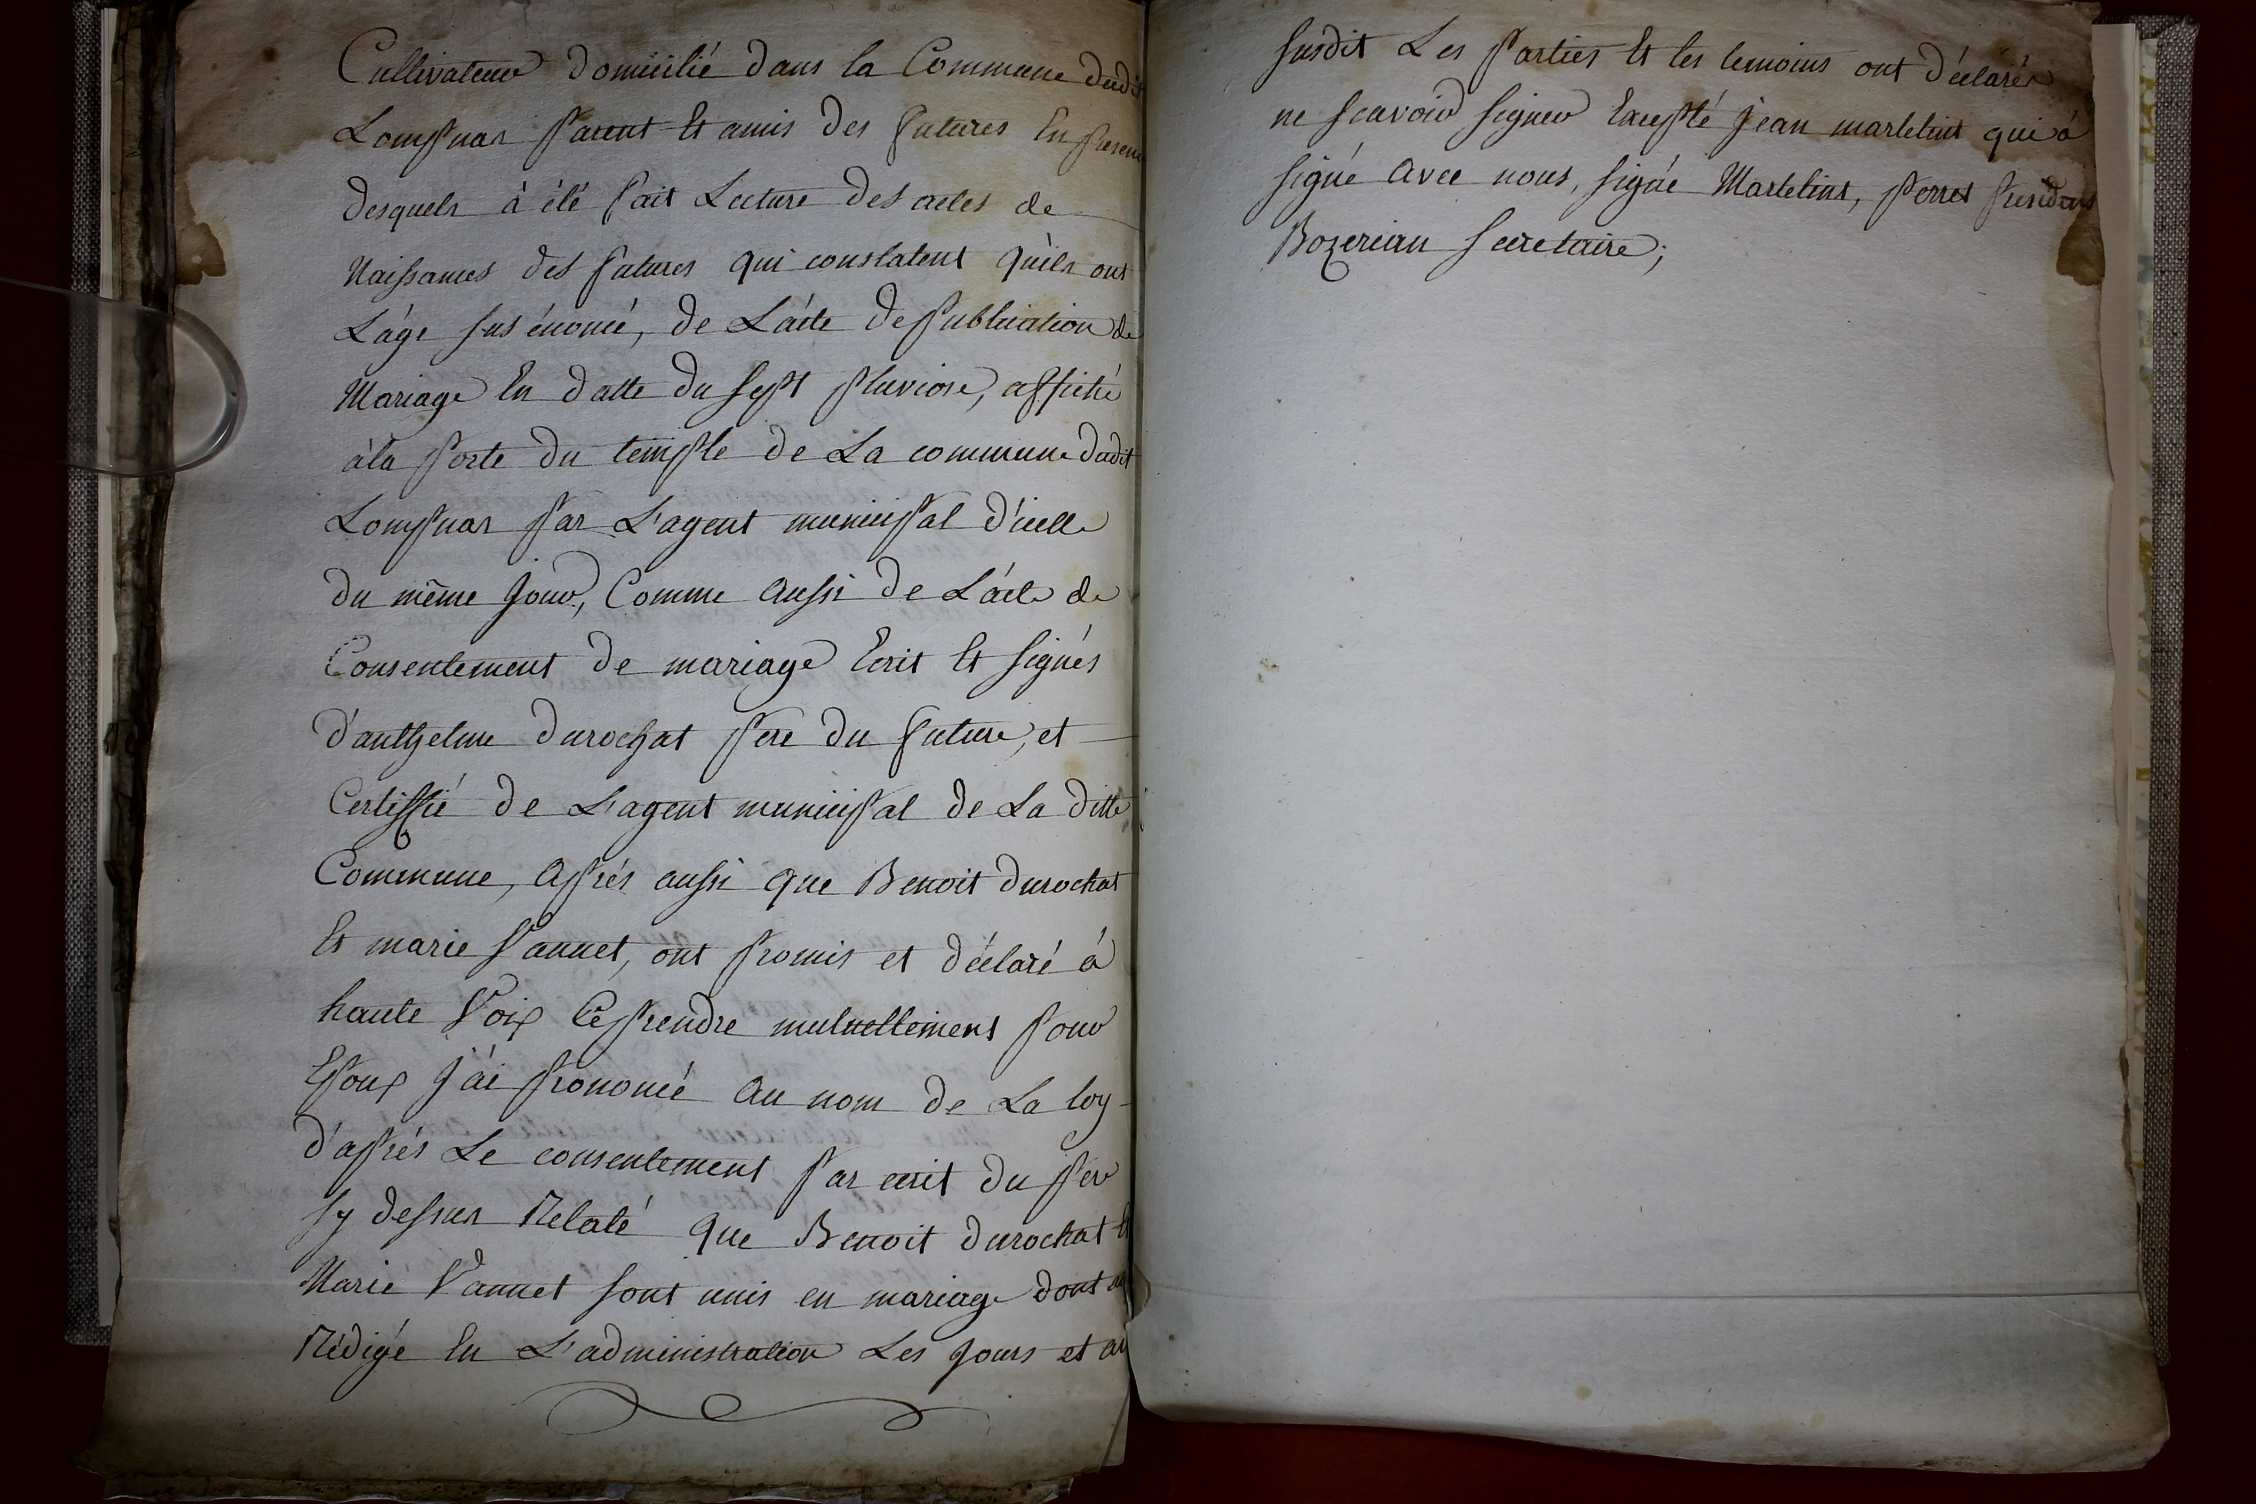 Cultivateur domicilié dans la Commune dudit
Lompnas Parent Et amis des futures En presence
desquels à été fait Lecture des actes de
Naissances des futures qui constatent qu'ils ont
L'áge sus énoncé, de L'ácte de Publication de
Mariage En datte du sept Pluviose, affiché
à la Porte du temple de La commune dudit
Lompnas Par L'agent municipal d'icelle
du même jour, Comme aussi de L'ácte de
Consentement de mariage Ecrit Et signés
d'anthelme durochat Pere du future, et
Certiffié de L'agent municipal de La ditte
Commune, Aprés aussi que Benoit durochat
Et marie Vannet, ont Promis et déclaré á
haute Voix Ce Prendre mutuellement Pour
Epoux j'ái Prononcé Au nom de La loy
d'aprés Le consentement Par ecrit du Per
sy dessus Relaté que Benoit durochat Et
Marie Vannet sont unis en mariage dont
Rédigé En L'administration Les jours et an
susdit Les Parties Et les temoins ont déclarés
ne scavoir signer Excepté jean martelin qui á
signé avec nous, signé Martelin, Perret President
Bozerian secretaire;